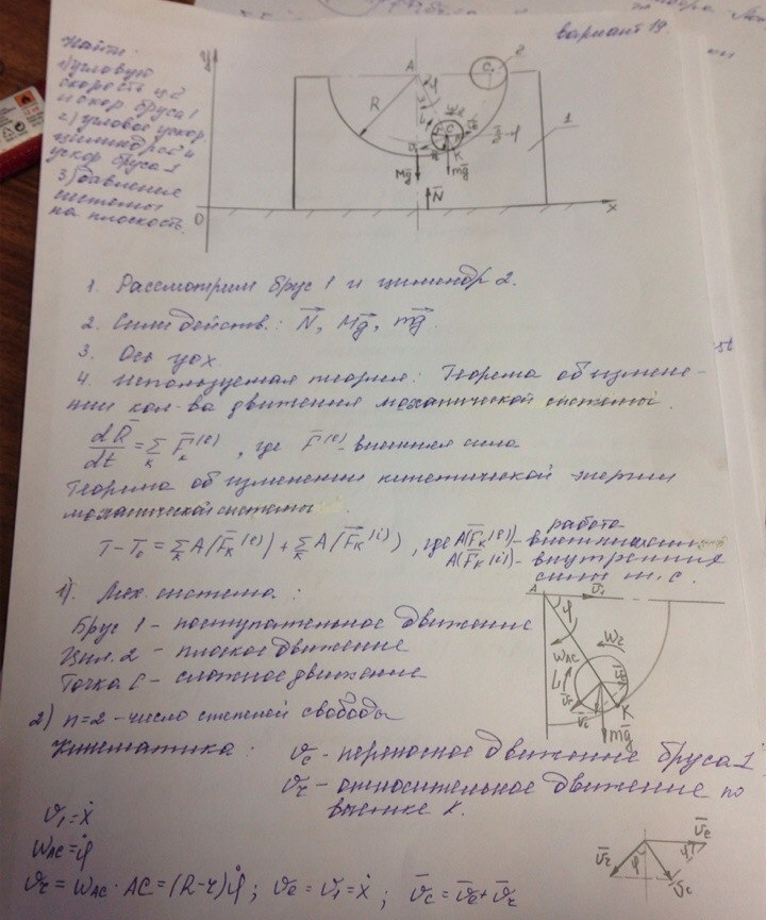 вариант 19.
Найти:
1) угловую
скорость ц. 2
и скор бруса 1
2) угловое ускор.
цилиндра и
ускор бруса 1
3) давление
системы
на плоскость.
y
A
C
2
φ
R
1
K
Mg
mg
N
O
x
1. Рассмотрим брус 1 и цилиндр 2.
2. Силы действ.: N, Mg, mg.
3. Оси yox.
4. Используемая теория: Теорема об измене-
нии кол-ва движения механической системы.
dR/dt = Σ F̄ₖ⁽ᵉ⁾, где F̄⁽ᵉ⁾ - внешняя сила
Теорема об изменении кинетической энергии
механической системы.
T - T₀ = Σ A(F̄ₖ⁽ᵉ⁾) + Σ A(F̄ₖ⁽ⁱ⁾), где A(F̄ₖ⁽ᵉ⁾) - работа
внешних
A(F̄ₖ⁽ⁱ⁾) - внутренних
силы м.с.
1). Мех. система:
Брус 1 - поступательное движение
Цил. 2 - плоское движение
Точка C - сложное движение
2) n=2 - число степеней свободы
A
v₁
φ
ω₂
ωAC
K
mg
Кинематика: vₑ - переносное движение бруса 1
vᵣ - относительное движение по
выемке
v₁ = ẋ
ωAC = φ̇
vᵣ = ωAC · AC = (R-r)φ̇; vₑ = v₁ = ẋ; v̄c = v̄ₑ + v̄ᵣ
v̄ₑ
v̄ᵣ
φ
v̄c